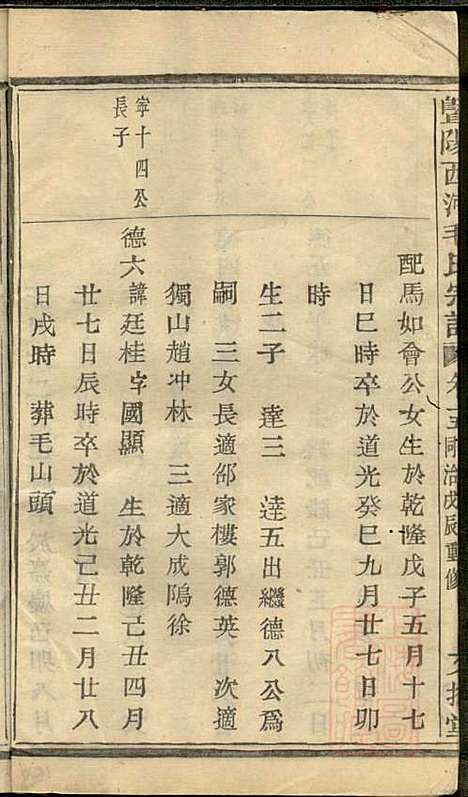 暨陽西河毛氏宗譜 卷五 同治戊辰重修
配馬如會公女生於乾隆戊子五月十七
日巳時卒於道光癸巳九月廿七日卯
時
生二子 達三 達五出繼德八公爲
嗣 三女長適邵家樓郭德英 次適
獨山趙冲林 三適大成隖徐
寧十四公
長子
德六諱廷桂字國顯 生於乾隆己丑四月
廿七日辰時卒於道光己丑二月廿八
日戌時 葬毛山頭